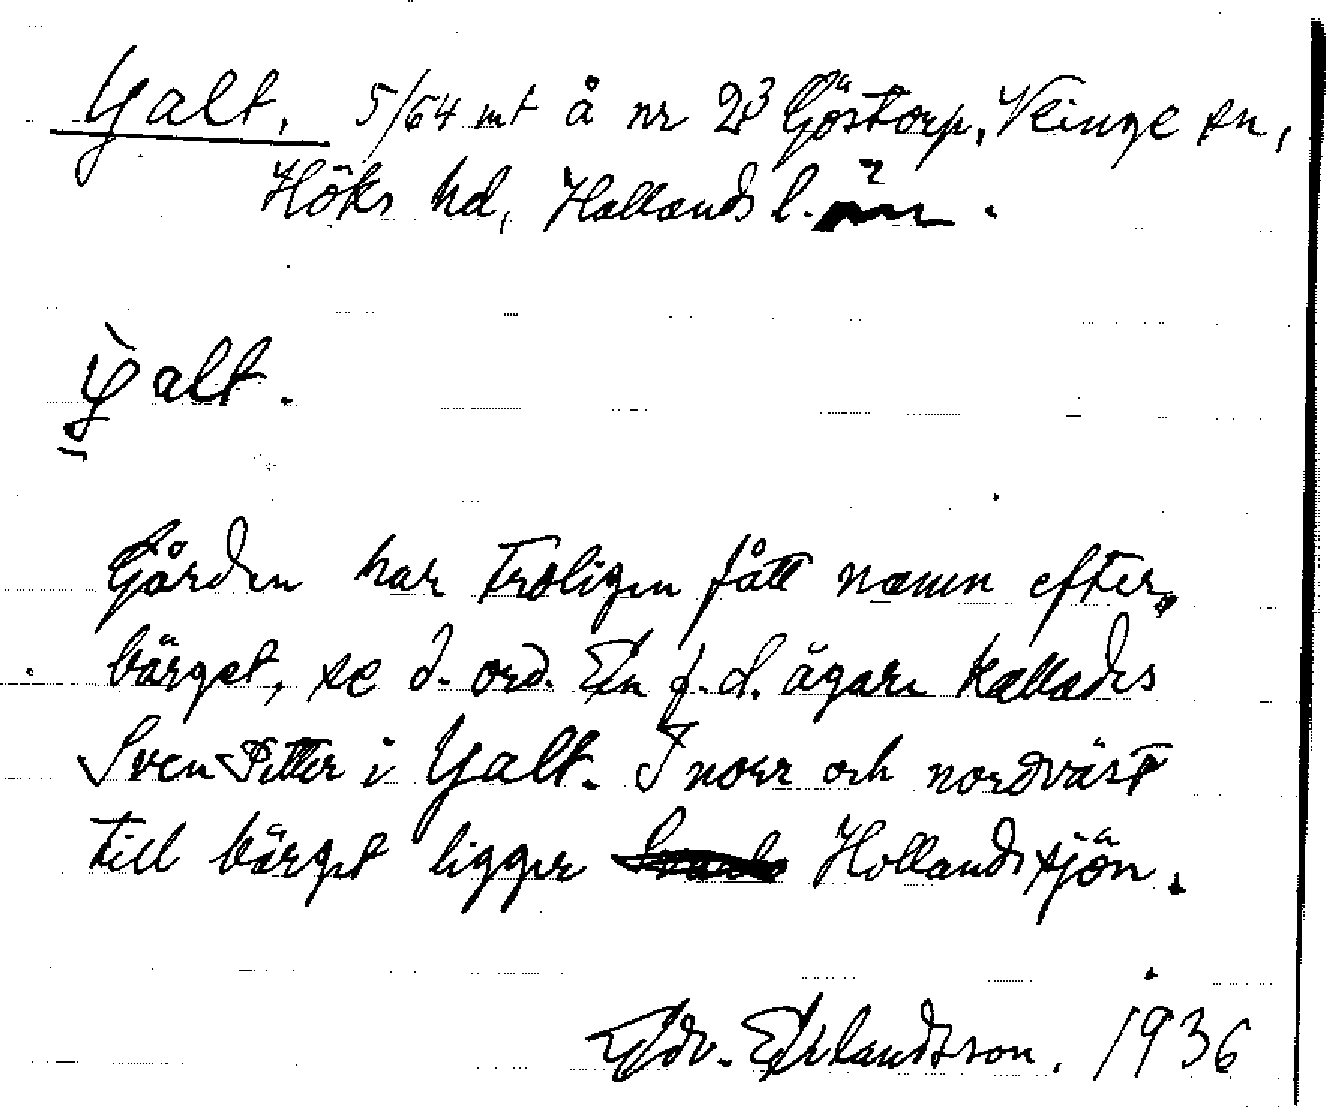 Yalt, 5/64 mt å nr 23 Göstorp, Veinge sn,
Höks hd, Hallands l.
Yalt.
Gården har troligen fått namn efter
bärget, se d. ord. En f.d. ägare kallades
Sven Petter i Yalt. I norr och nordväst
till bärget ligger Hollandssjön.
Edv. Erlandsson. 1936